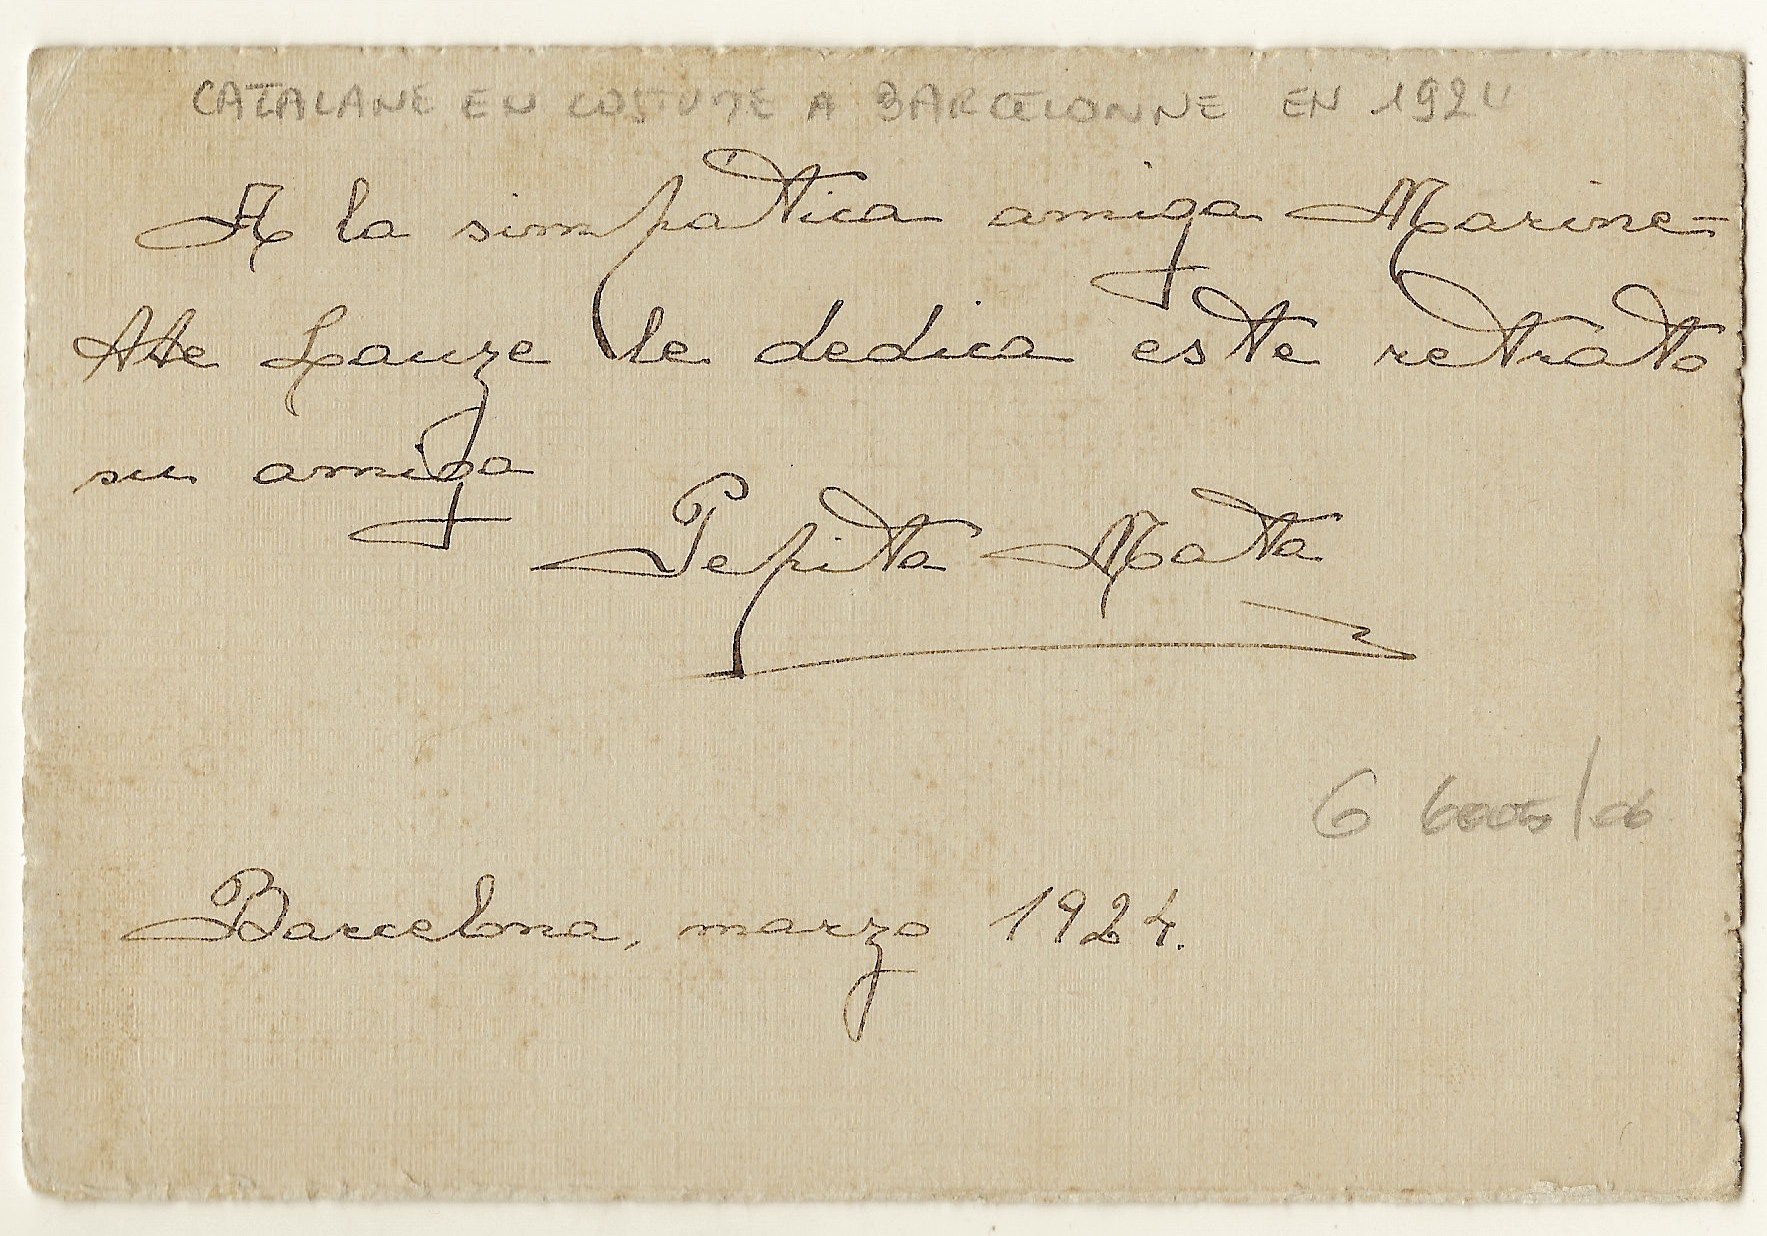 CATALANE EN COSTUME A BARCELONNE EN 1924
A la simpatica amiga Marine-
tte Lauze le dedica este retrato
su amiga
Pepita Mata
Barcelona, marzo 1924.